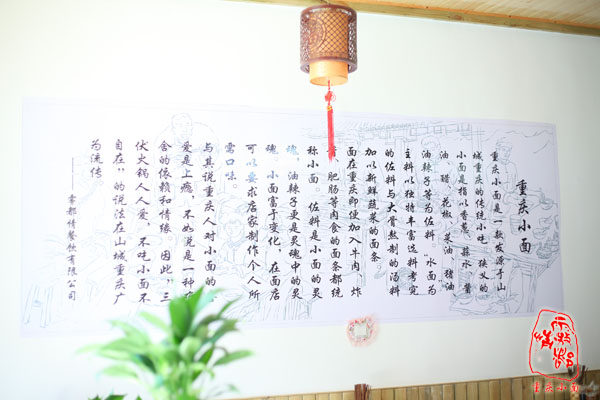 重庆小面
重庆小面是一款发源于山
城重庆的传统小吃。狭义的
小面是指以香葱、蒜水、酱
油、醋、花椒、菜油、猪油
油辣子等为佐料，水面为
主料以独特丰富选料考究
的佐料与大骨熬制的汤料
加以新鲜蔬菜的面条
面在重庆即使加入牛肉、炸
酱、肥肠等肉食的面条都统
称小面。佐料是小面的灵
魂，油辣子更是灵魂中的灵
魂。小面富于变化，在面店
可以要求店家制作个人所
需口味。
与其说重庆人对小面的
爱是上瘾，不如说是一种
舍的依赖和情缘。因此“三
伏火锅人人爱，不吃小面不
自在”的说法在山城重庆广
为流传
——雾都情餐饮有限公司
重庆小面